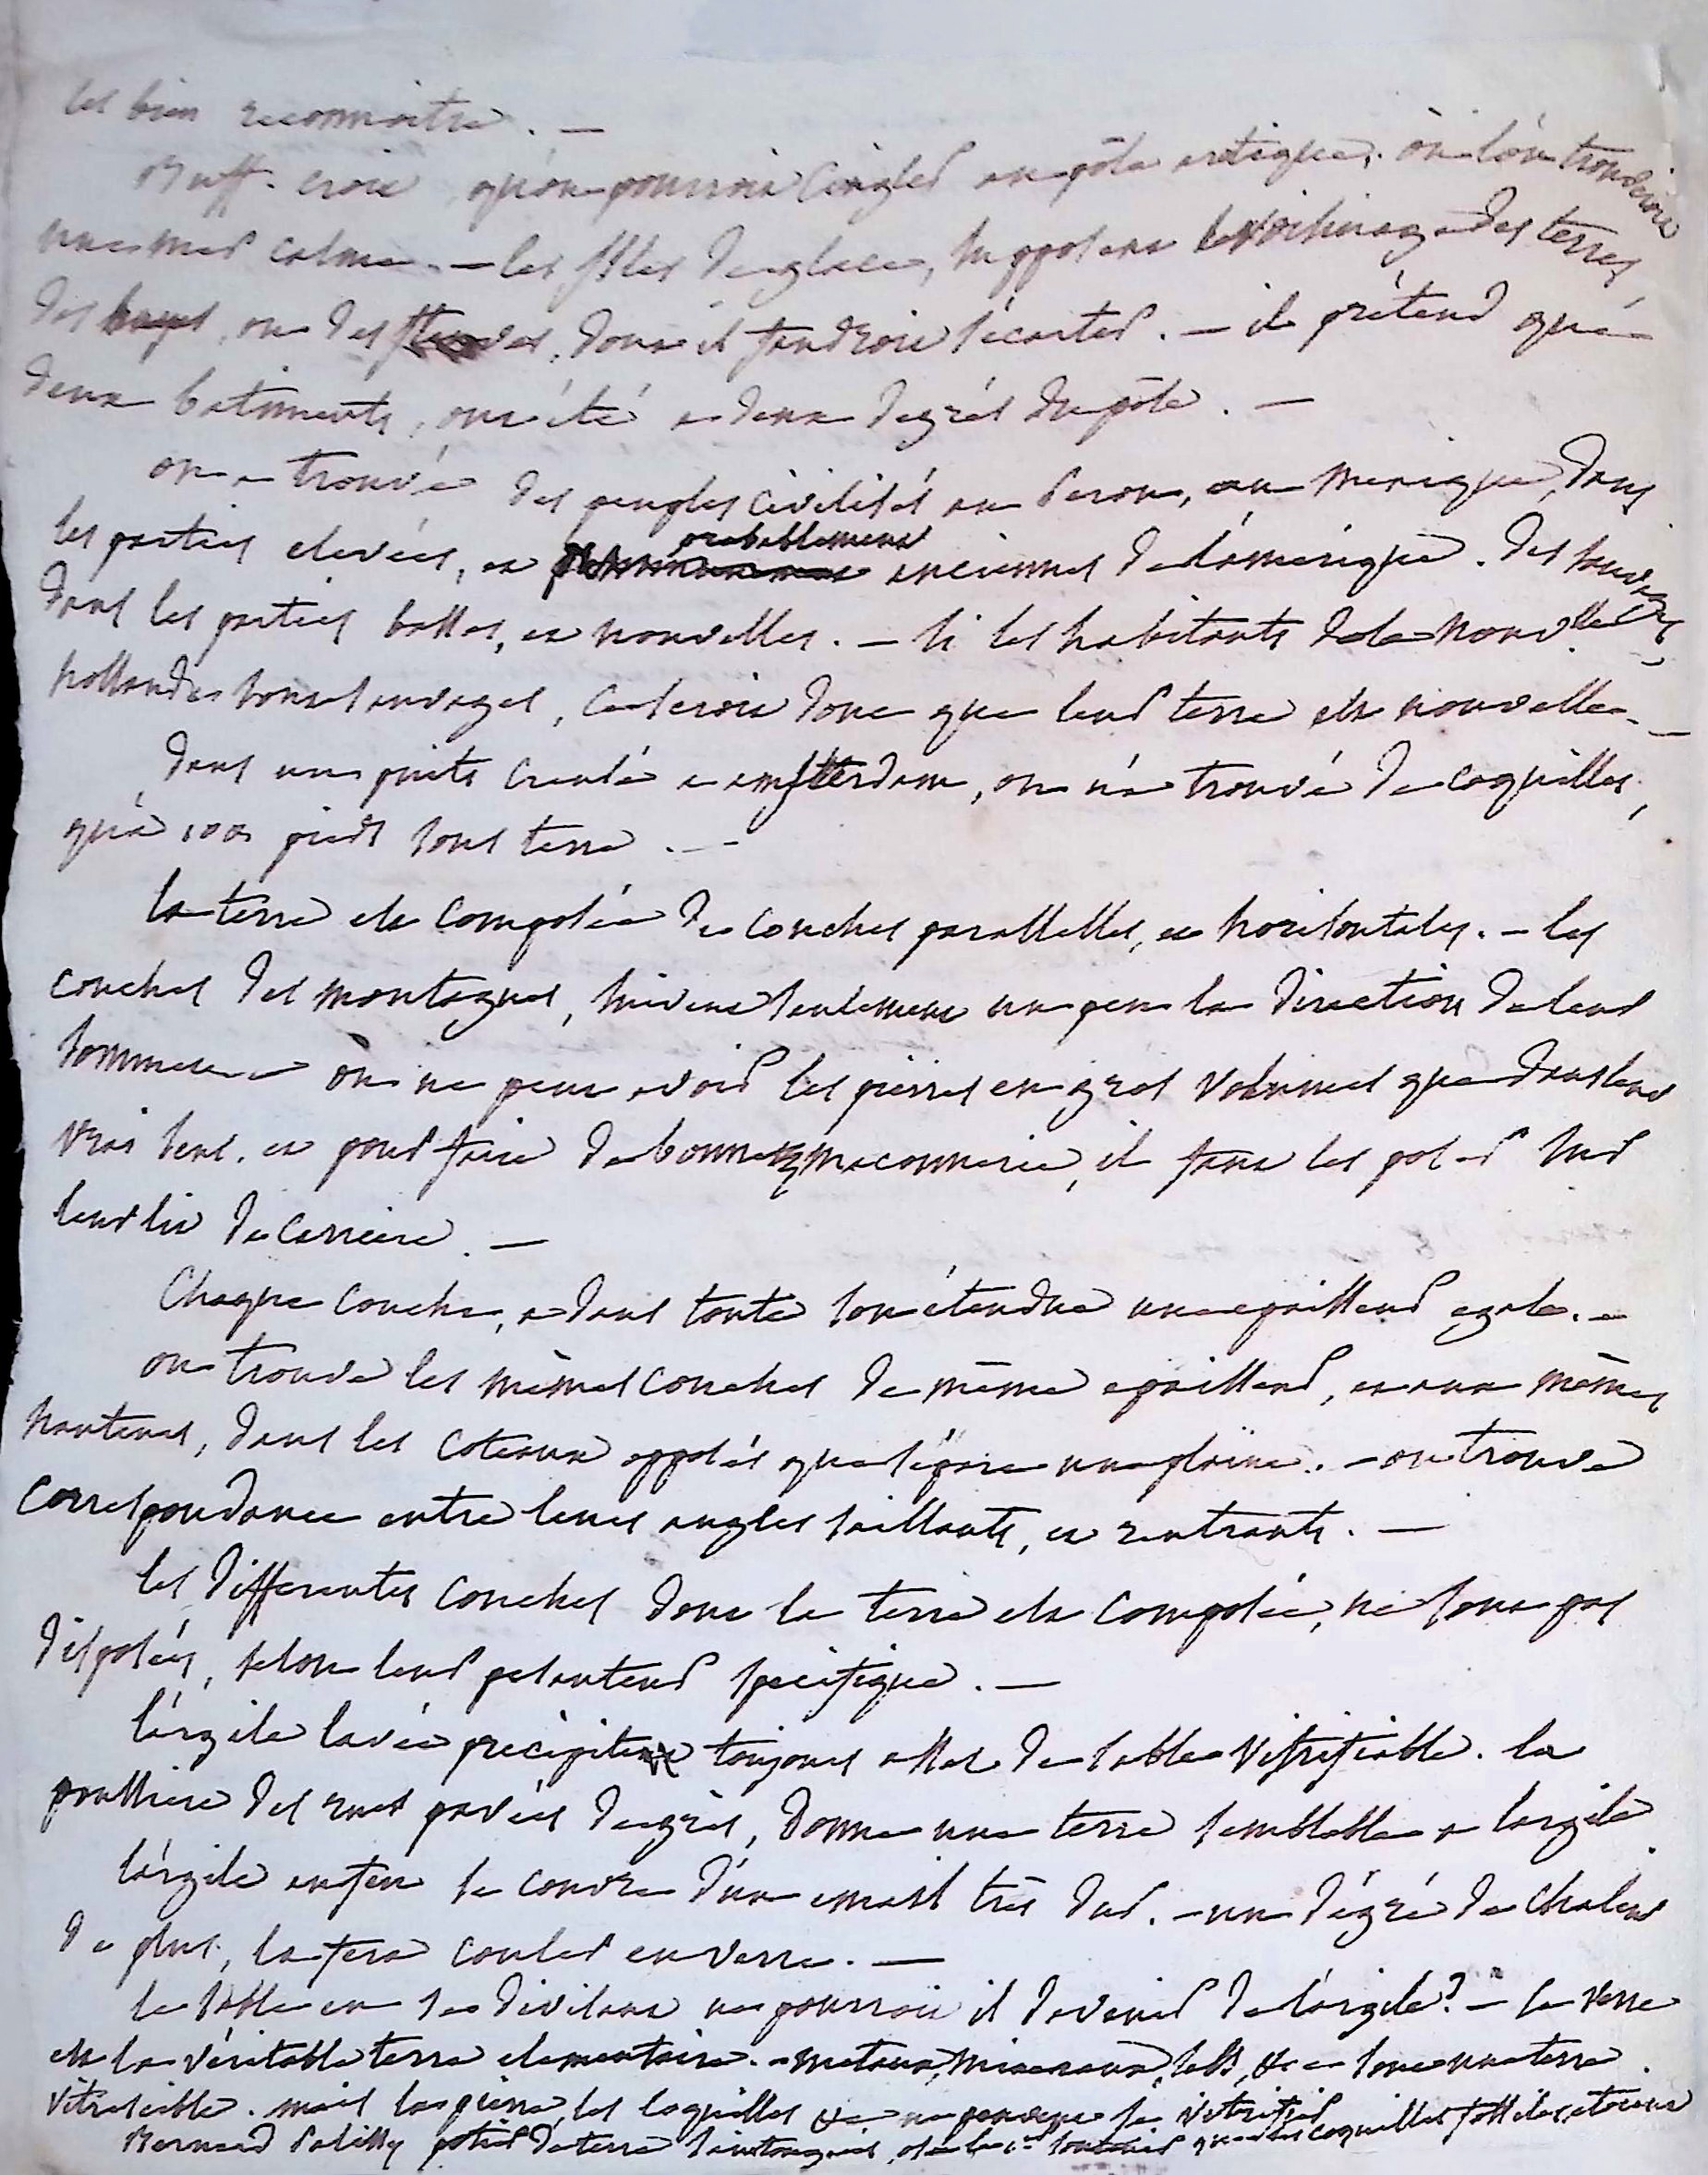 les bien reconnoitre. —
Buff. croit qu'on pourroit cingler au pôle arctique, où l'on trouveroit
une mer calme. — les isles de glace, supposent le voisinage des terres,
des bayes, ou des fleuves, dont il faudroit s'écarter. — il prétend que
deux batiments, ont été a deux degrés du pôle. —
on a trouvé des peuples civilisés au Perou, au Mexique, dans
les parties elevées, et probablement anciennes de l'amerique. des sauvages,
dans les parties basses, et nouvelles. — si les habitants de la nouvlle
hollande sont sauvages, ce seroit donc que leur terre est nouvelle. —
dans un puits creusé a amsterdam, on n'a trouvé de coquilles,
qu'a 100 pieds sous terre. —
la terre est composée de couches paralleles, et horisontales. — les
couches des montagnes, suivent seulement un peu la direction de leur
sommet. on ne peut avoir les pierres en gros volumes que dans leur
vrai sens. et pour faire de bonne maconnerie, il faut les poser sur
leur lit de carriere. —
Chaque couche, a dans toute son étendue une epaisseur egale. —
on trouve les mêmes couches de même epaisseur, et aux mêmes
hauteurs, dans les coteaux opposés que sépare une plaine. — on trouve
correspondance entre leurs angles saillants, et rentrants. —
les differentes couches dont la terre est composée, ne sont pas
disposées, selon leur pesanteur specifique. —
l'argile lavée precipite toujours assez de sable vitrifiable. la
poussiere des rues pavées de grès, donne une terre semblable a l'argile.
l'argile au feu se couvre d'un email très dur. — un dégré de chaleur
de plus, la fera couler en verre. —
le sable en se divisant ne pourroit il devenir de l'argile? — le verre
est la véritable terre elementaire. — metaux, mineraux, sels, &c — sont une terre
vitrescible. mais la pierre, les coquilles &c ne peuvent se vitrifier.
Bernard Palissy potier de terre saintongeois, osa le 1er soutenir que les coquilles fossiles, étoient